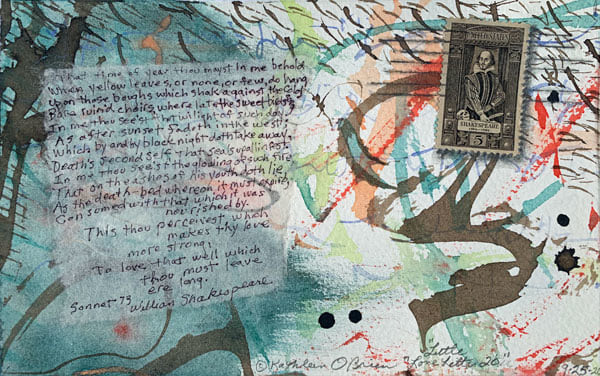 That time of year thou mayst in me behold
When yellow leaves, or none, or few, do hang
Upon those boughs which shake against the cold,
Bare ruin'd choirs, where late the sweet birds
In me thou see'st the twilight of such day
As after sunset fadeth in the west
Which by and by black night doth take away,
Death's second self that seals up all in rest
In me thou see'st the glowing of such fire
That on the ashes of his youth doth lie,
As the death-bed whereon it must expire,
Consumed with that which it was
nourished by.
This thou perceivest which
makes thy love
more strong,
To love that well which
thou must leave
ere long.
Sonnet 73 William Shakespeare
UNITED STATES
SHAKESPEARE
5
"Little
© Kathleen O'Brien Love Letter 26"
9-25-2